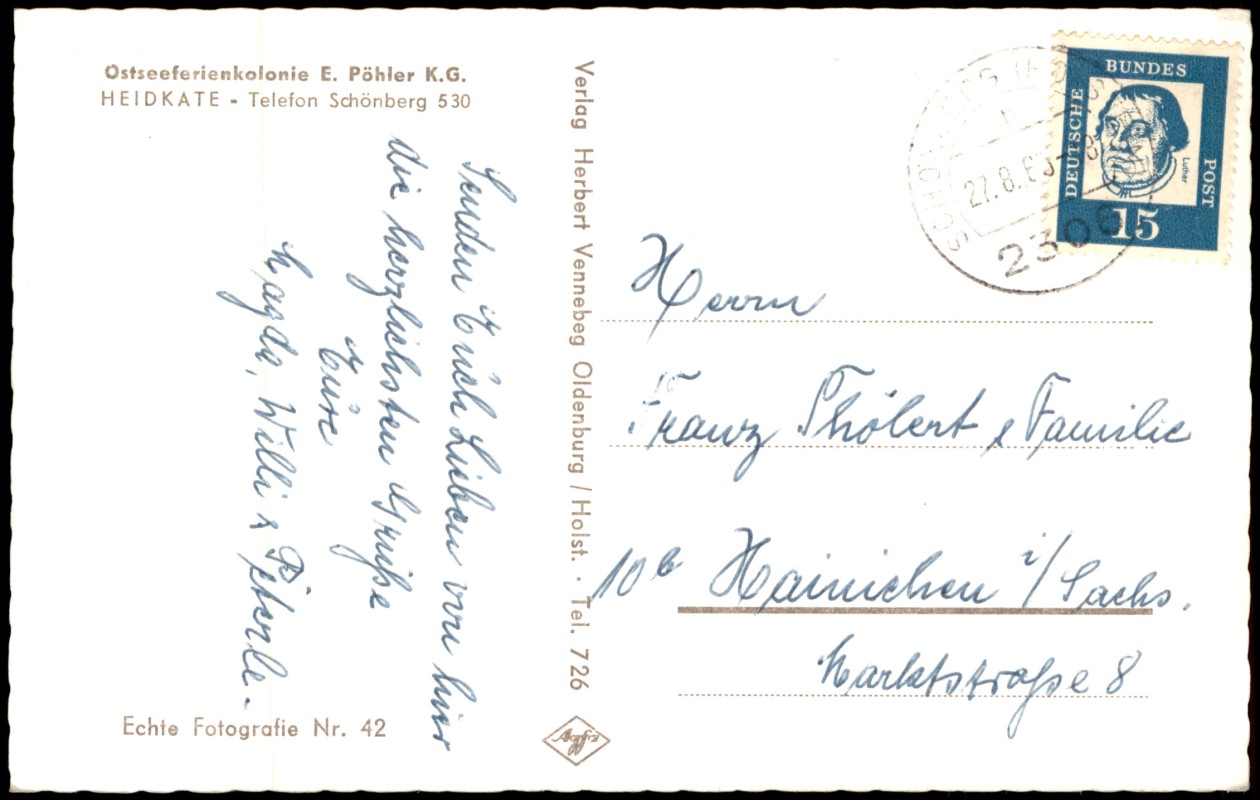 Ostseeferienkolonie E. Pöhler K.G.
HEIDKATE - Telefon Schönberg 530
Senden Euch Lieben von hier
die herzlichsten Grüße
Eure
Magda, Willi & Peterle.
Echte Fotografie Nr. 42
Verlag Herbert Vennebeg Oldenburg / Holst. · Tel. 726
Agfa
27.8.6
DEUTSCHE
BUNDES
POST
Luther
15
Herrn
Franz Thölert & Familie
10b Hainichen i/Sachs.
Marktstraße 8